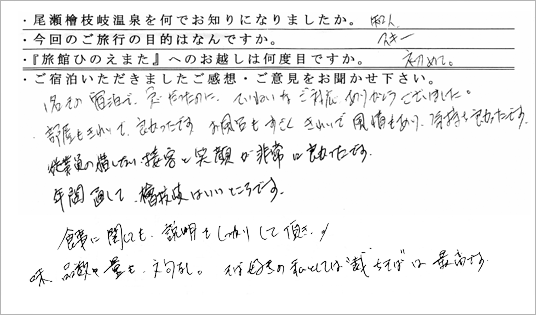 ・尾瀬檜枝岐温泉を何でお知りになりましたか。 知人
・今回のご旅行の目的はなんですか。 スキー
・『旅館ひのえまた』へのお越しは何度目ですか。 初めて。
・ご宿泊いただきましたご感想・ご意見をお聞かせ下さい。
1名での宿泊で、急だったのに、ていねいなご対応ありがとうございました。
・部屋もきれいで、良かったです お風呂もすごくきれいで風情もあり、気持ち良かったです。
従業員の皆しない接客と笑顔が非常に良かったです。
年間通して、檜枝岐はいいところです。
食事に関しても、説明もしっかりして頂き、
味、品数、量も、文句なし。 そば好きの私としては"裁ちそば"は最高です